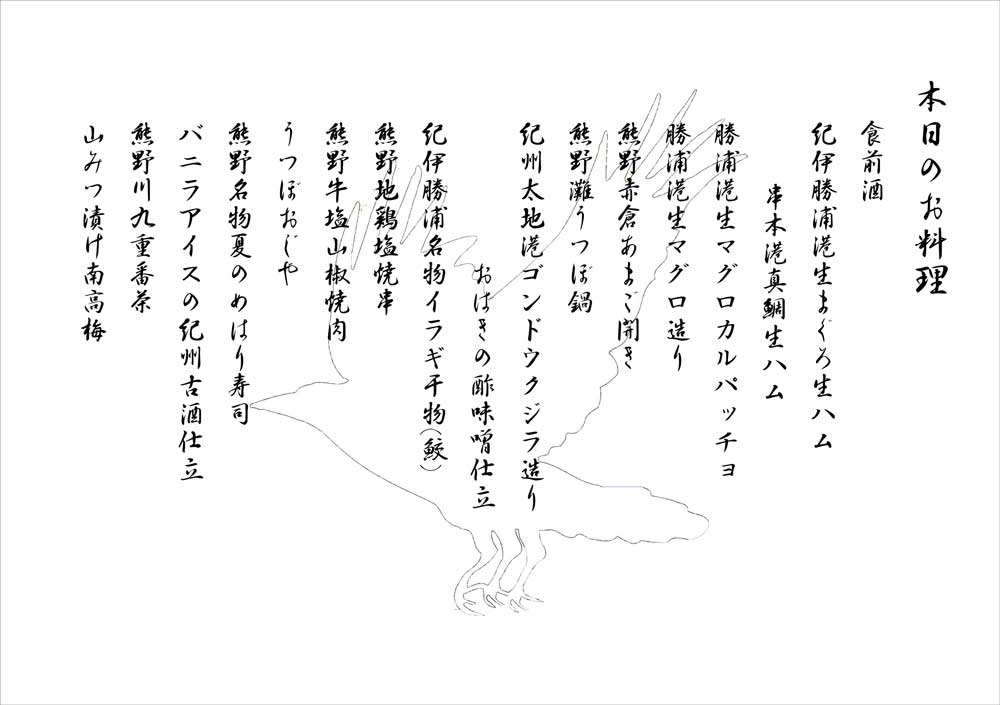 本日のお料理
食前酒
紀伊勝浦港生まぐろ生ハム
串本港真鯛生ハム
勝浦港生マグロカルパッチョ
勝浦港生マグロ造り
熊野赤倉あまご開き
熊野灘うつぼ鍋
紀州太地港ゴンドウクジラ造り
おはきの酢味噌仕立
紀伊勝浦名物イラギ干物(鮫)
熊野地鶏塩焼串
熊野牛塩山椒焼肉
うつぼおじや
熊野名物夏のめはり寿司
バニラアイスの紀州古酒仕立
熊野川九重番茶
山みつ漬け南高梅